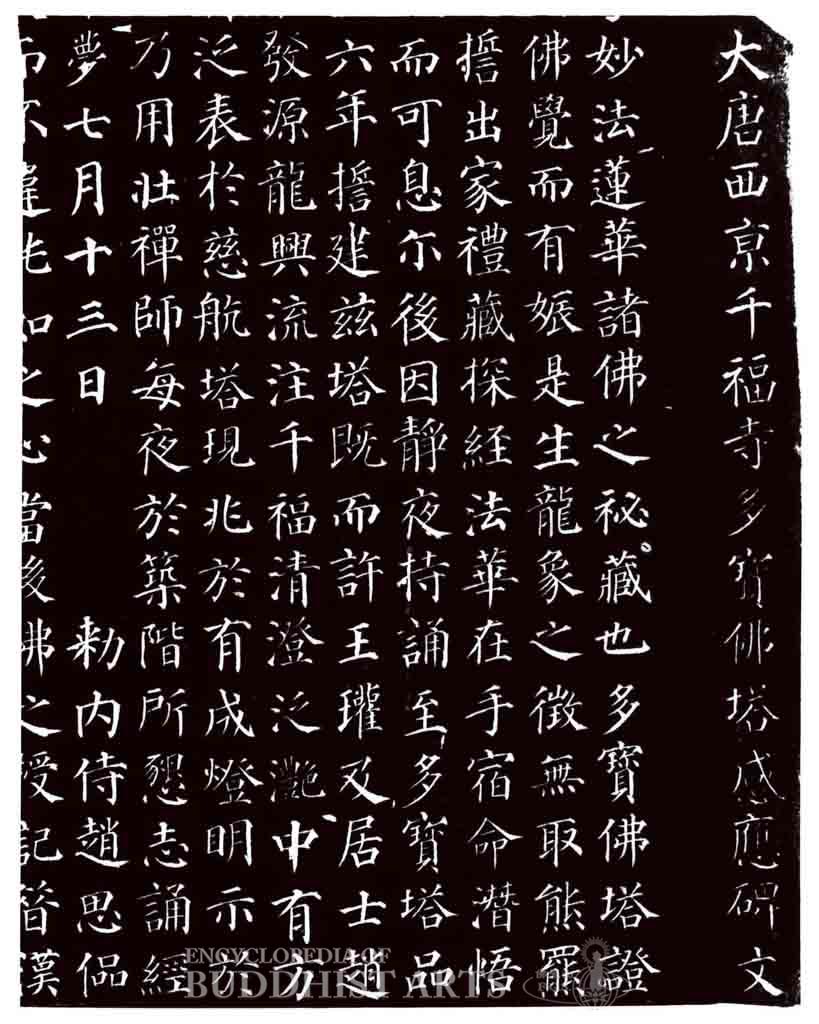 大唐西京千福寺多寶佛塔感應碑文
妙法蓮華諸佛之秘藏也多寶佛塔證
佛覺而有娠是生龍象之徵無取熊羆
誓出家禮藏探經法華在手宿命潛悟
而可息尔後因靜夜持誦至多寶塔品
六年誓建兹塔既而許王瓘及居士趙
發源龍興流注千福清澄泛灧中有方
泛表於慈航塔現兆於有成燈明示於
乃用壯禪師每夜於築階所懇志誦經
夢七月十三日 勑内侍趙思侃
而不違如之心當後佛之授記昔漢
ENCYCLOPEDIA OF
BUDDHIST ARTS